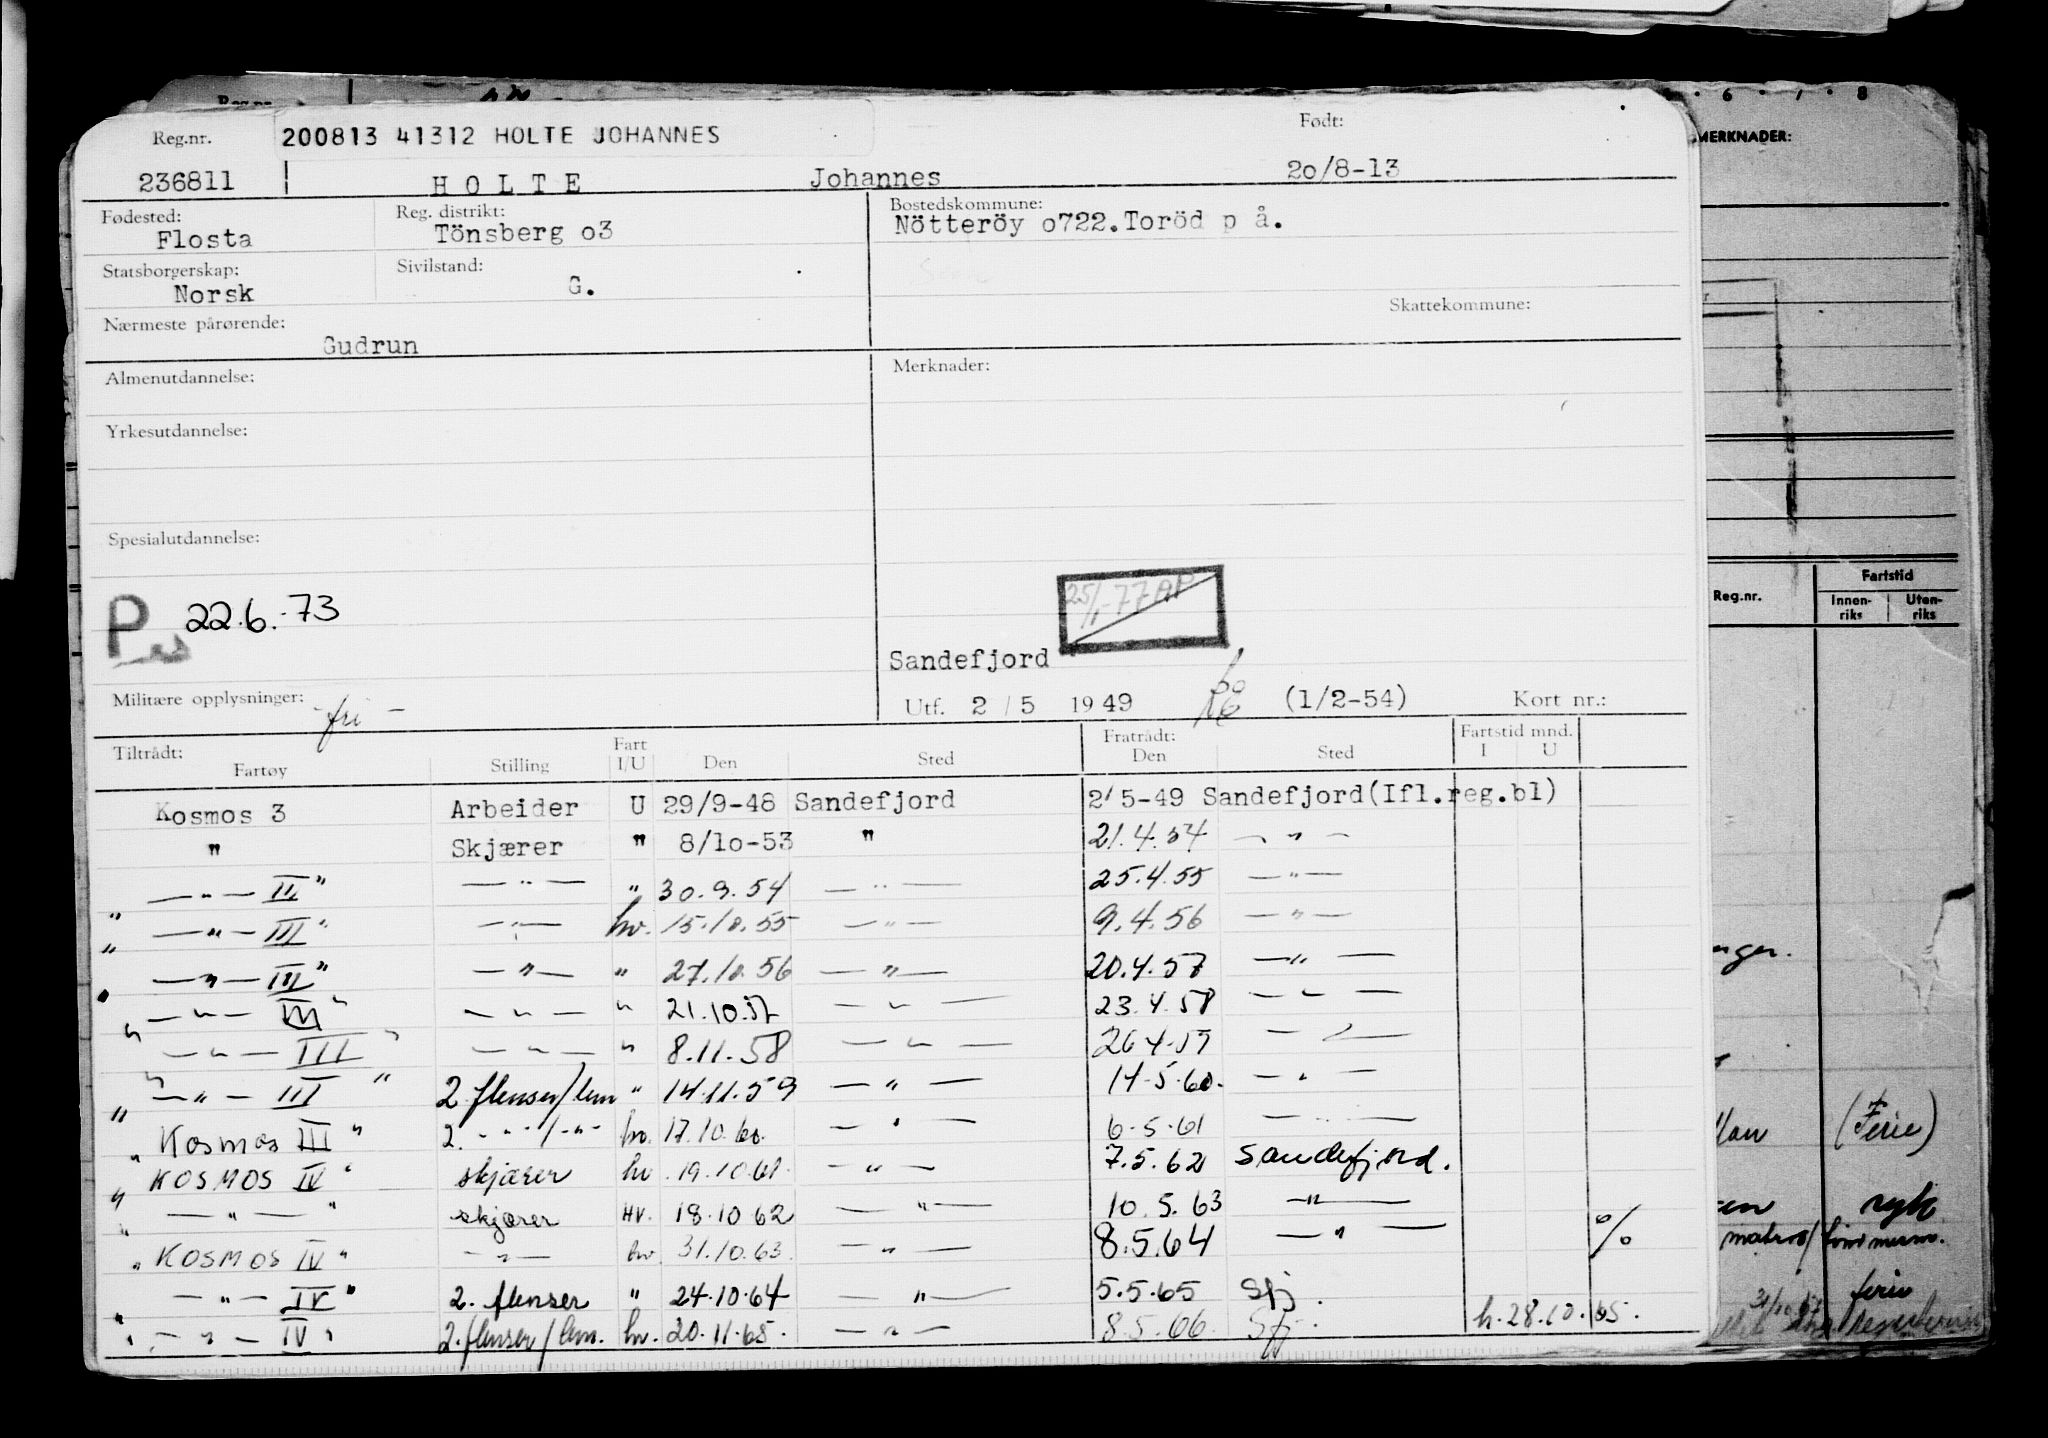 Reg.nr. 200813 41312 HOLTE JOHANNES Født:
236811 HOLTE Johannes 2o/8-13
Fødested: Reg. distrikt: Bostedskommune:
Flosta Tönsberg o3 Nötteröy o722.Toröd p å.
Statsborgerskap: Sivilstand:
Norsk G.
Skattekommune:
Nærmeste pårørende:
Gudrun
Almenutdannelse: Merknader:
Yrkesutdannelse:
Spesialutdannelse:
P 22.6.-73
25/1-77 AP
Sandefjord
Militære opplysninger: -fri- Utf. 2 / 5 1949 (1/2-54) Kort nr.:
Tiltrådt: Fart Fratrådt: Fartstid mnd.
Fartøy Stilling I/U Den Sted Den Sted I U
Kosmos 3 Arbeider U 29/9-48 Sandefjord 2/5-49 Sandefjord(Ifl.reg.bl)
" Skjærer " 8/1o-53 " 21.4.54 — " —
— " — II" — " — " 30.9.54 — " — 25.4.55 — " —
" — " — III" — " — hv. 15.10.55 — " — 9.4.56 — " —
" — " — III" — " — " 27.10.56 — " — 20.4.57 — " —
" — " — III" — " — " 21.10.57 — " — 23.4.58 — " —
" — " — III" — " — " 8.11.58 — " — 26.4.59 — " —
" — " — III" 2. flenser/lem " 14.11.59 — " — 14.5.60. — " —
" Kosmos III" 2. - " - / - " - hv. 17.10.60. — " — 6.5.61 — " —
" KOSMOS IV" skjærer hv 19.10.61. — " — 7.5.62 Sandefjord.
" — " — " skjærer HV. 18.10.62 — " — 10.5.63 — " —
" KOSMOS IV" — " — hv. 31.10.63. — " — 8.5.64 — " — %
— " — IV" 2. flenser " 24.10.64 — " — 5.5.65 Sfj.
" — " — IV" 2. flenser/lem. hv. 20.11.65. — " — 8.5.66. Sfj. h.28.10.65.
6 . 7 . 8
MERKNADER:
Fartstid
Reg.nr. Innen-riks Uten-riks
(Ferie)
matros/
ferie